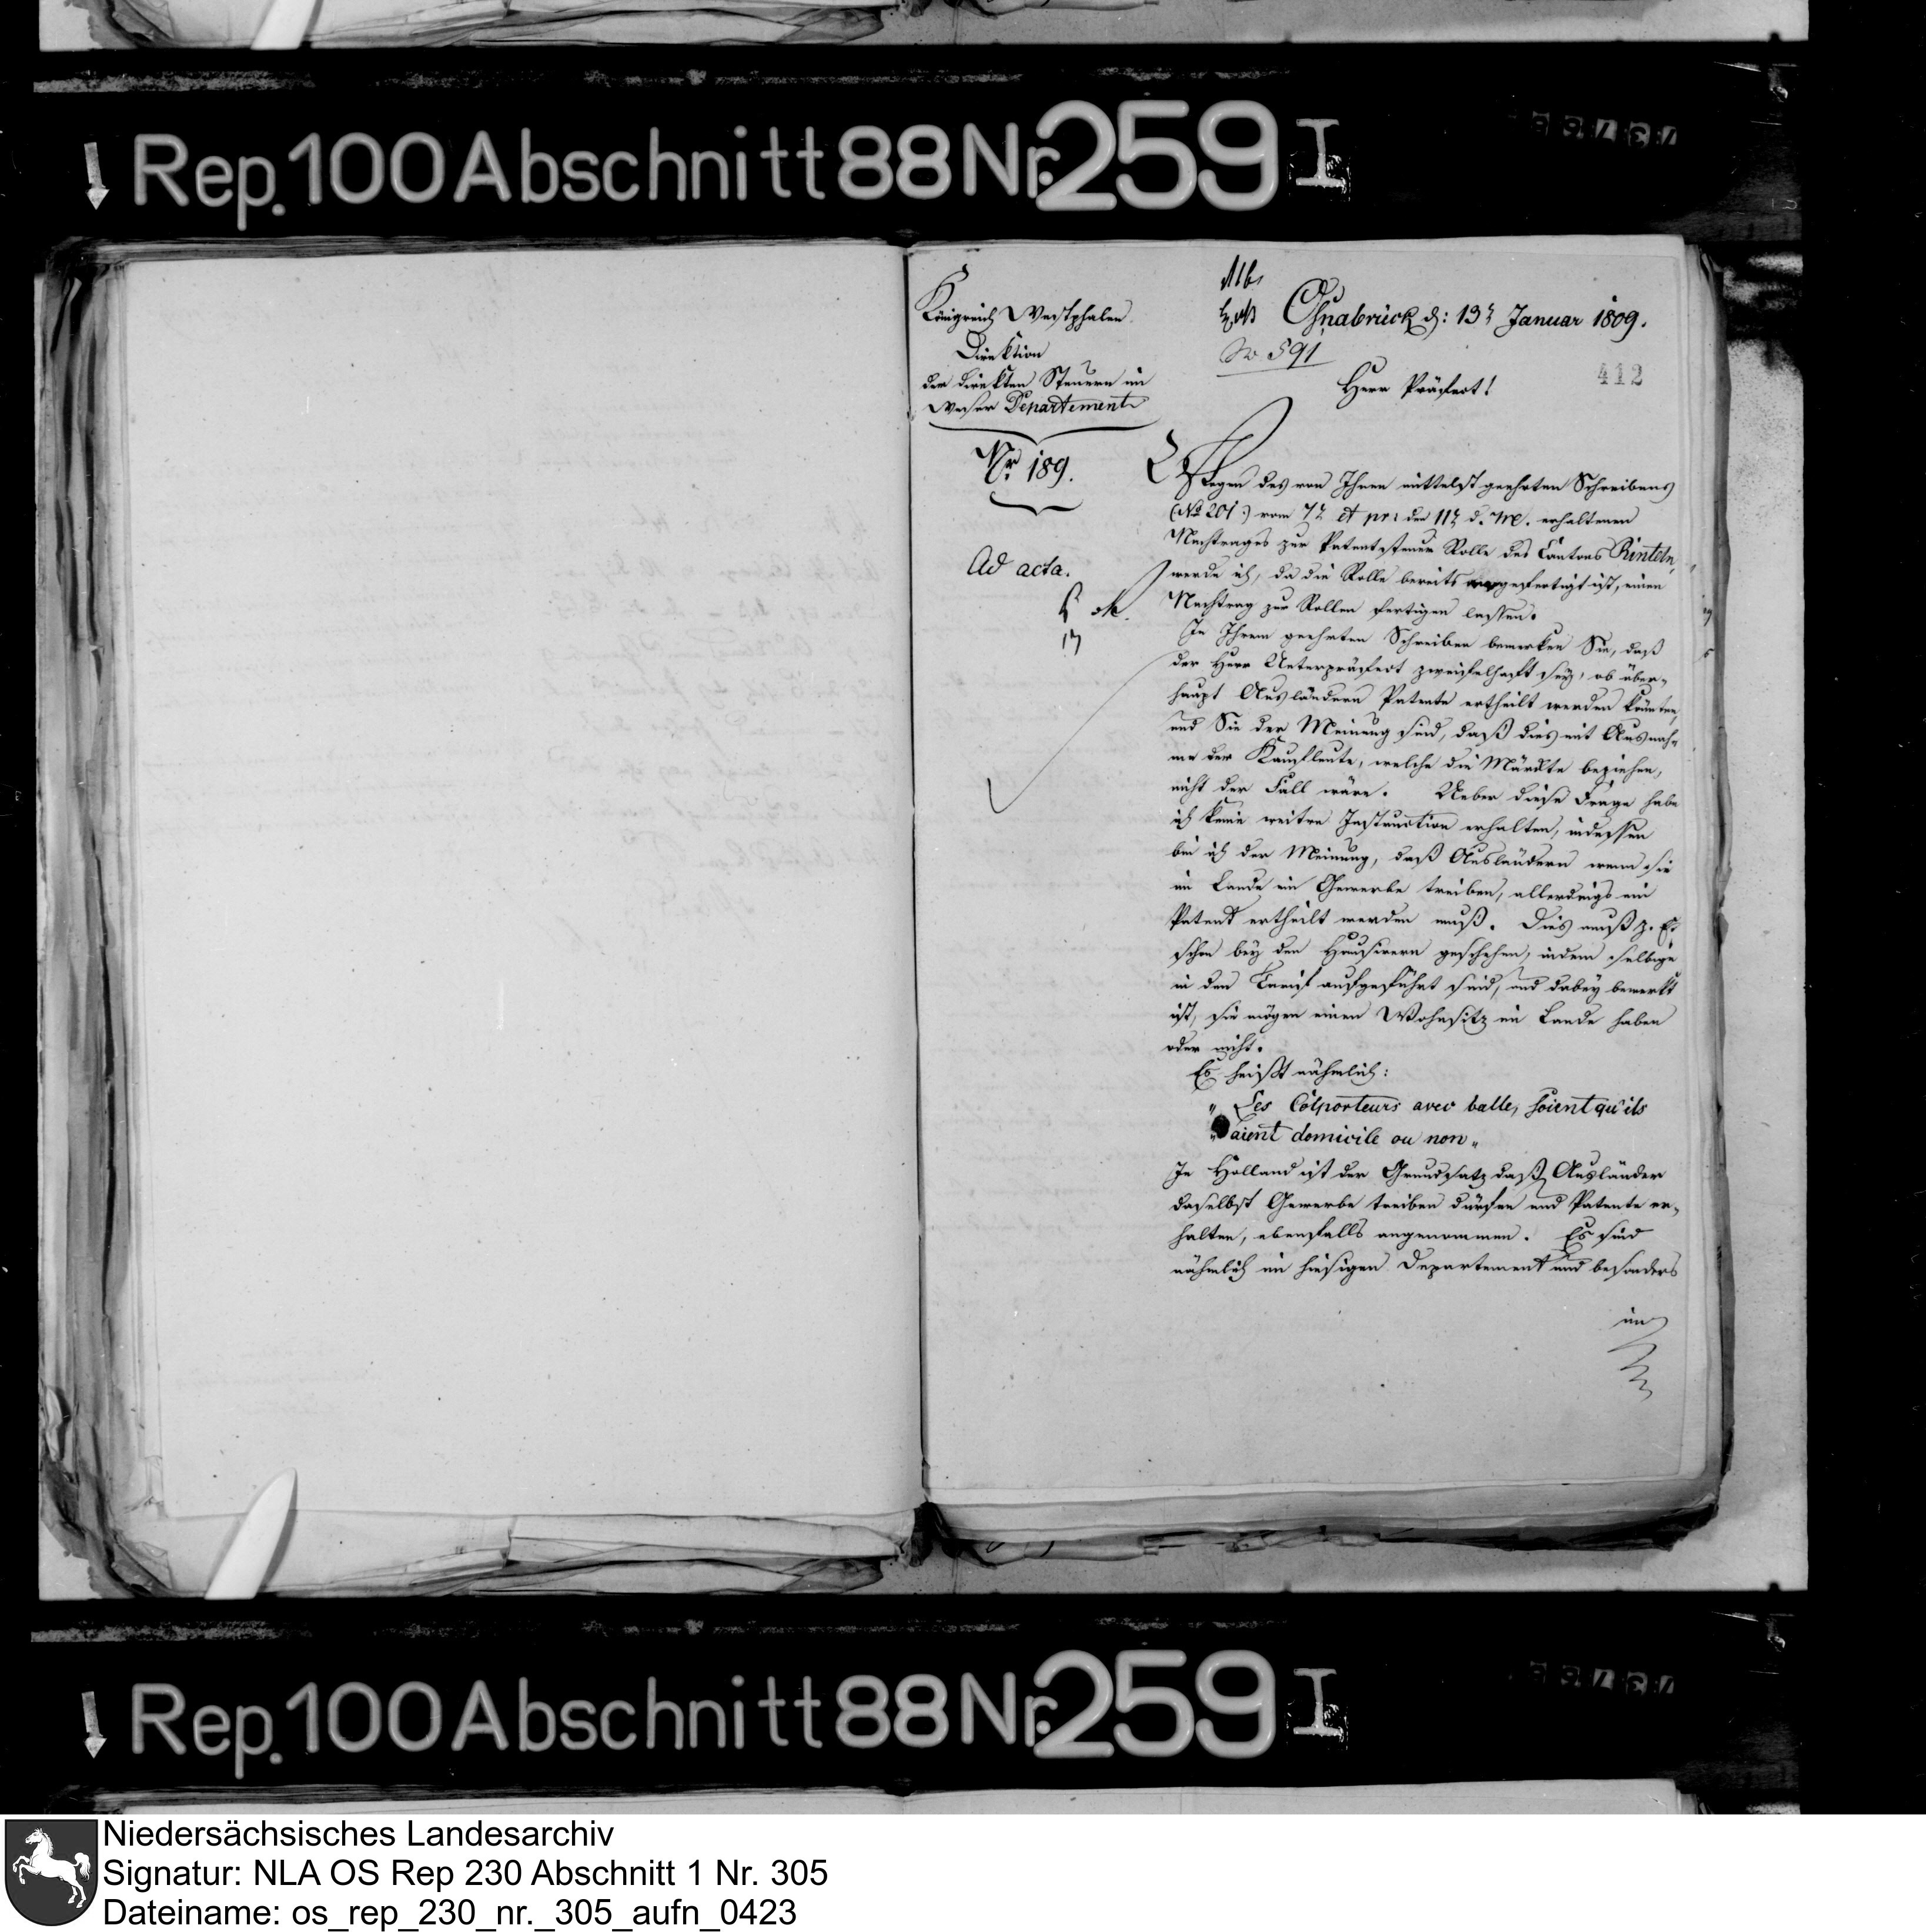 Rep. 100 Abschnitt 88 Nr. 259 I
Königreich Westphalen.
Direktion
der direkten Steuern im
Weser Departement
Nr. 189.
Ad acta.
Osnabrück d: 13t Januar 1809.
No 591
412
Herr Präfect!
Wegen des von Ihnen mittelst geehrten Schreibens
(No 201.) vom 7t et pr: den 11t d. M. erhaltenen
Nachtrages zur Patentsteuer Rolle des Cantons Rinteln,
werde ich, da die Rolle bereits angefertigt ist, einen
Nachtrag zur Rollen fertigen lassen.
In Ihrem geehrten Schreiben bemerken Sie, daß
der Herr Unterpräfect zweifelhaft sey, ob über-
haupt Ausländern Patente ertheilt werden könnten,
und Sie der Meinung sind, daß dies mit Ausnah-
me der Kaufleute, welche die Märkte beziehen,
nicht der Fall wäre. Ueber diese Frage habe
ich keine weitre Instruction erhalten, indessen
bin ich der Meinung, daß Ausländern wenn sie
im Lande ein Gewerbe treiben, allerdings ein
Patent ertheilt werden muß. Dies muß z. E.
schon bey den Hausirern geschehen, indem selbige
in den Tarif aufgeführt sind, und dabey bemerkt
ist, sie mögen einen Wohnsitz im Lande haben
oder nicht.
Es heißt nähmlich:
„Les Colporteurs avec balle, soient qu'ils
„aient domicile ou non„
In Holland ist der Grundsatz daß Ausländer
daselbst Gewerbe treiben dürfen und Patente er-
halten, ebenfalls angenommen. Es sind
nähmlich im hiesigen Departement und besonders
im
Rep. 100 Abschnitt 88 Nr. 259 I
Niedersächsisches Landesarchiv
Signatur: NLA OS Rep 230 Abschnitt 1 Nr. 305
Dateiname: os_rep_230_nr._305_aufn_0423